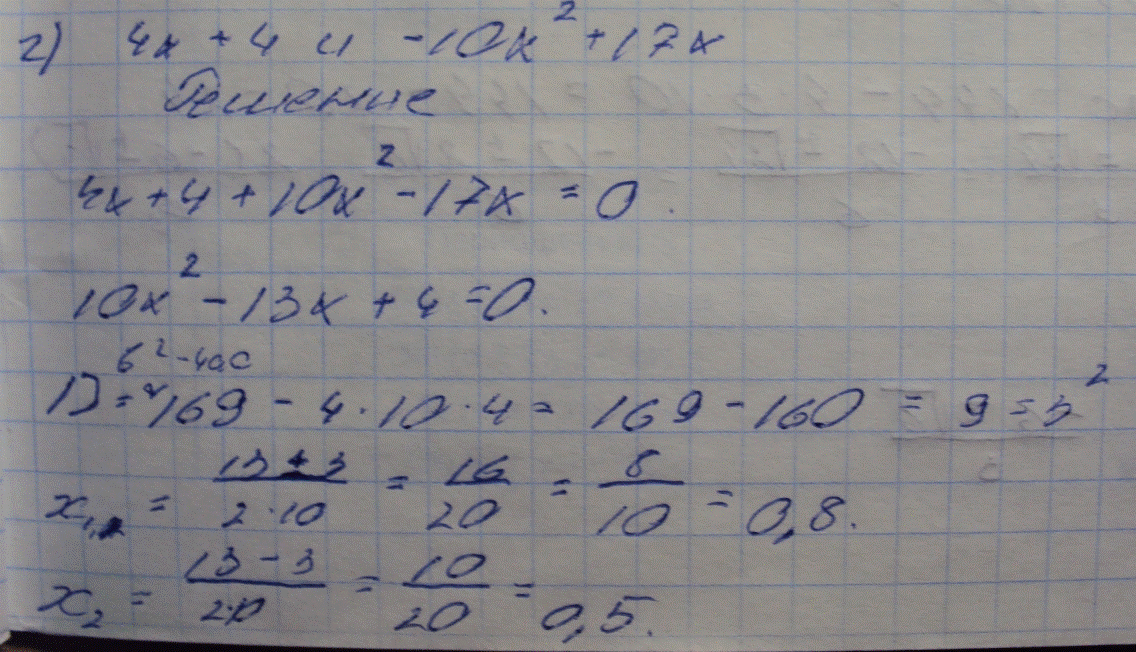 г) 4x + 4 и -10x² + 17x
Решение
4x + 4 + 10x² - 17x = 0.
10x² - 13x + 4 = 0.
в² - 4ac
D = 169 - 4·10·4 = 169 - 160 = 9 = 3²
x₁ = (13 + 3)/(2·10) = 16/20 = 8/10 = 0,8.
x₂ = (13 - 3)/(2·10) = 10/20 = 0,5.